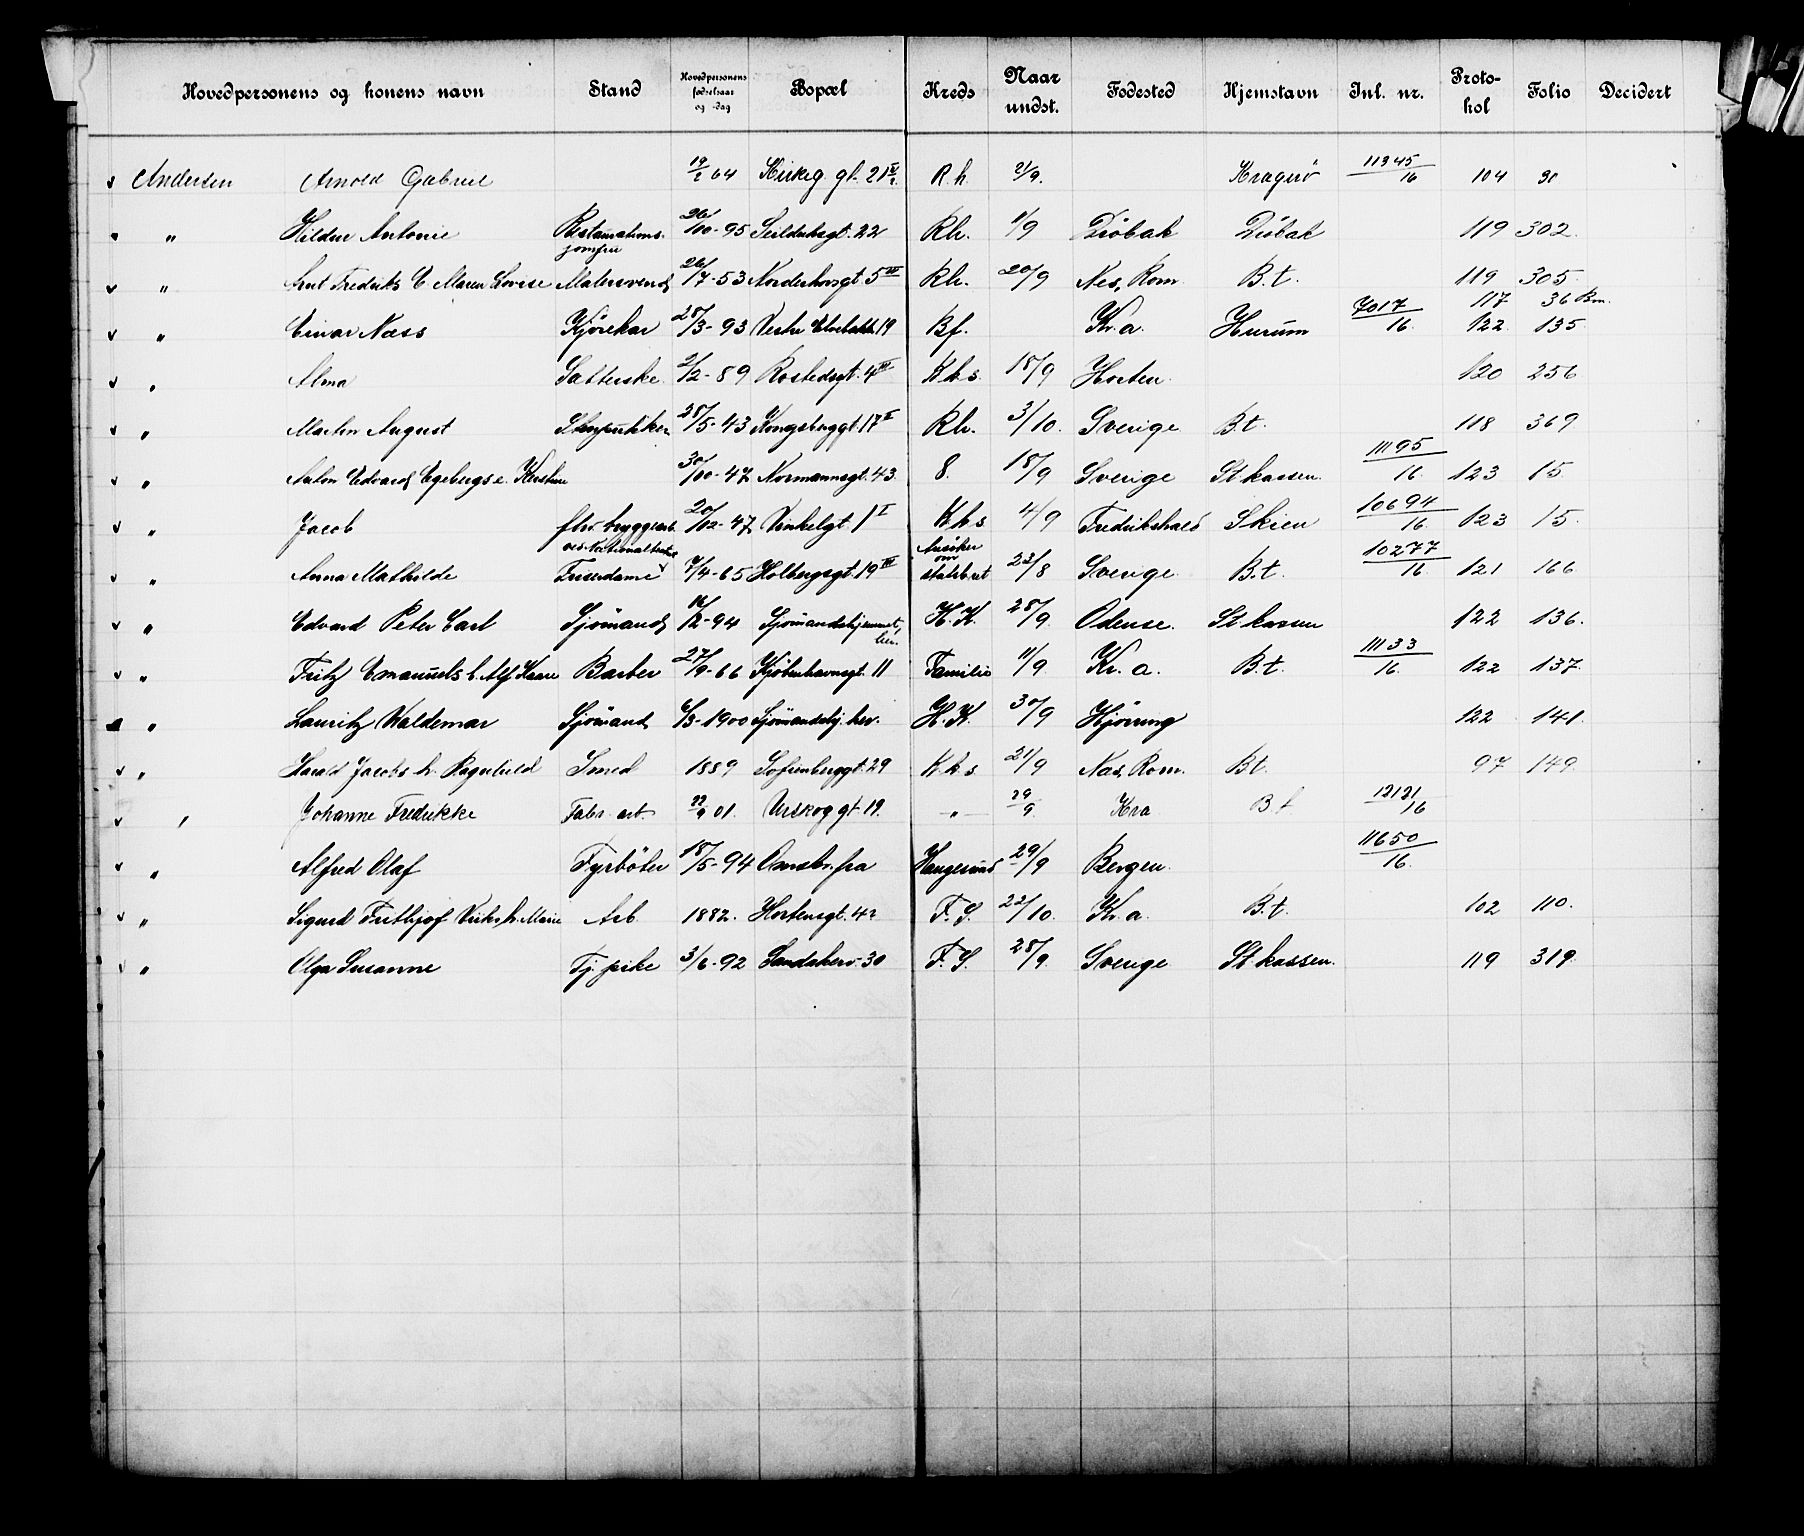 Hovedpersonens og konens navn Stand Hovedpersonens fødselsaar og -dag Bopæl Kreds Naar undst. Fødested Hjemstavn Inl. nr. Protokol Folio Decidert
Andersen Arnold Gabriel 64 Kirkeg gt. 21 R.h. 2/9. Kragerø 11345/16 104 31
" Hildur Antonie Restaurationsjomfru 26/10-95 Seildugsgt. 22 Rh. 1/9 Drøbak Drøbak 119 302
" Fredriks E. Maren Lovise Malersvend 26/7-53 Norderhovsgt 5 III Rh. 20/9 Nes, Rom. B.t. 119 305
117 36 Bm.
" Einar Næss Kjørekar 28/3-93 Vestre Elvebakke 19 Bf. Kr.a. Hurum 7017/16. 122 135
" Alma Sætterske 2/2-89 Rostedsgt. 4 III K.h.s. 18/9 Horten. 120 256
" Martin August 28/5-43 Kongsberggt. 17 I Rh. 3/10. Sverige B.t. 118 369
" Anton Edvard Egebergs e. 30/10-47 Normannsgt. 43. 8. 18/9 Sverige St kassen. 11195/16. 123 15.
" Jacob fhv. bryggearb. 20/12-47 Vinkelgt 1 I K.h.s 4/9 Fredrikshald Skien 10694/16. 123 15.
" Anna Mathilde Friserdame ved Nationaltheatret 7/4-65 Holbergsgt. 19 III Ansøker om statsb.ret 23/8 Sverige. B.t. 10277/16 121 166
" Edvard Peter Carl Sjømand 16/12-94 Sjømandshjemmet, her. H.K. 28/9. Odense. St kassen 122 136.
" Fritz Emanuels b. Alf Kaare Barber 27/9-66 Kjøbenhavnsgt. 11 Familie 11/9 Kr.a. B.t. 11133/16. 122 137.
" Lauritz Valdemar Sjømand 6/3-1900 Sjømandshj. her. H.K. 30/9 Hjørring 122 141.
" Harald Jacobs h. Ragnhild Smed 1889 Sofienberggt. 29 K.h.s. 21/9 Næs, Rom. Bt. 97 149
" Johanne Fredrikke Fabr. arb. 22/9 01. Urskog gt 19. " 29/9. Kra B t 12121/16
" Alfred Olaf Fyrbøter 18/5-94 Omstr. fra Haugesund 29/9 Bergen. 11650/16.
" Sigurd Fritbjof h. Marie Arb. 1882. Hortensgt. 42 F.S. 22/10. Kr.a. B.t. 102 110.
" Olga Susanne Tj. pike 3/6-92 Sandakerv. 30 F.S. 28/9. Sverige St kassen. 119 319